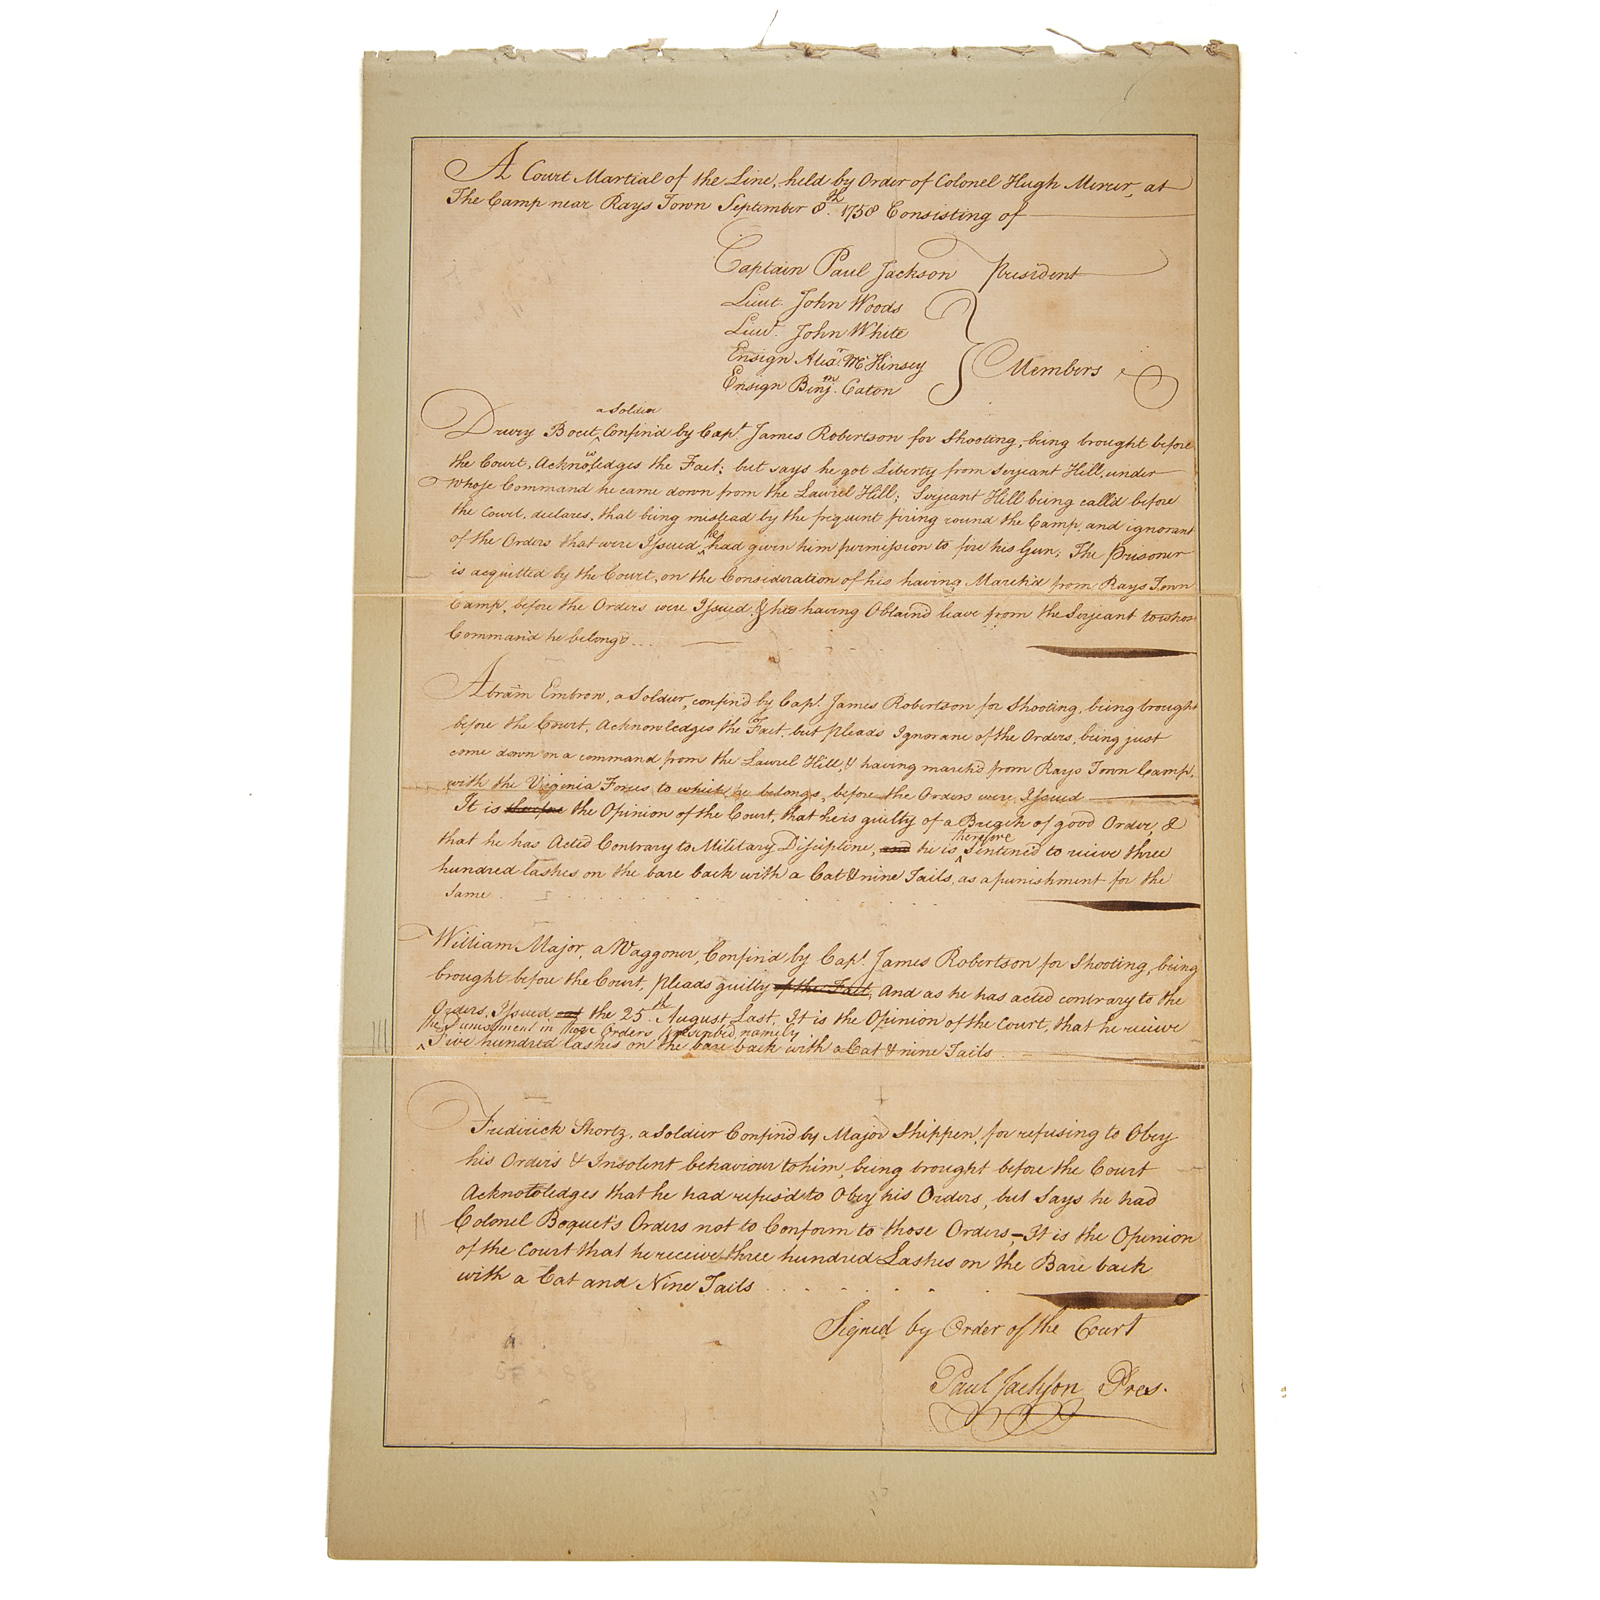 A Court Martial of the Line, held by Order of Colonel Hugh Mercer, at
The Camp near Rays Town September 8th. 1758 Consisting of
Captain Paul Jackson President
Lieut. John Woods
Lieut. John White
Ensign Alexr. McKinsey
Ensign Benjm. Caton
Members
a Soldier
Drury Bocet Confin'd by Capt. James Robertson for Shooting, being brought before
the Court, Acknowledges the Fact; but says he got Liberty from Serjeant Hill, under
whose Command he came down from the Laurel Hill; Serjeant Hill being call'd before
the Court, declares, that being mislead by the frequent firing round the Camp, and ignorant
of the Orders that were Issued he had given him permission to fire his Gun; The Prisoner
is acquitted by the Court, on the Consideration of his having March'd from Rays Town
Camp, before the Orders were Issued & his having Obtain'd leave from the Serjeant to whose
Command he belong'd
Abram Embron, a Soldier, confin'd by Capt. James Robertson for Shooting, being brought
before the Court, Acknowledges the Fact, but pleads Ignorane of the Orders, being just
come down on a command from the Laurel Hill, & having march'd from Rays Town Camp,
with the Virginia Forces to which he belongs, before the Orders were Issued
It is therefore the Opinion of the Court, that he is guilty of a Breach of good Order, &
therefore
that he has Acted Contrary to Military Discipline, and he is Sentenc'd to recive three
hundred lashes on the bare back with a Cat & nine Tails, as a punishment for the
Same
William Major, a Waggoner, Confin'd by Capt. James Robertson for Shooting, being
brought before the Court, pleads guilty of the Fact, And as he has acted contrary to the
Orders, Issued the 25th August Last, It is the Opinion of the Court, that he recieve
the Punishment in those Orders prescribed, namely
Five hundred lashes on the bare back with a Cat & nine Tails
Frederick Shortz, a Soldier Confin'd by Major Shippen, for refusing to Obey
his Orders & Insolent behaviour to him, being brought before the Court
Acknowledges that he had refus'd to Obey his Orders, but Says he had
Colonel Boquet's Orders not to Conform to those Orders,—It is the Opinion
of the Court that he receive three hundred Lashes on the Bare back
with a Cat and Nine Tails
Signed by Order of the Court
Paul Jackson Pres.